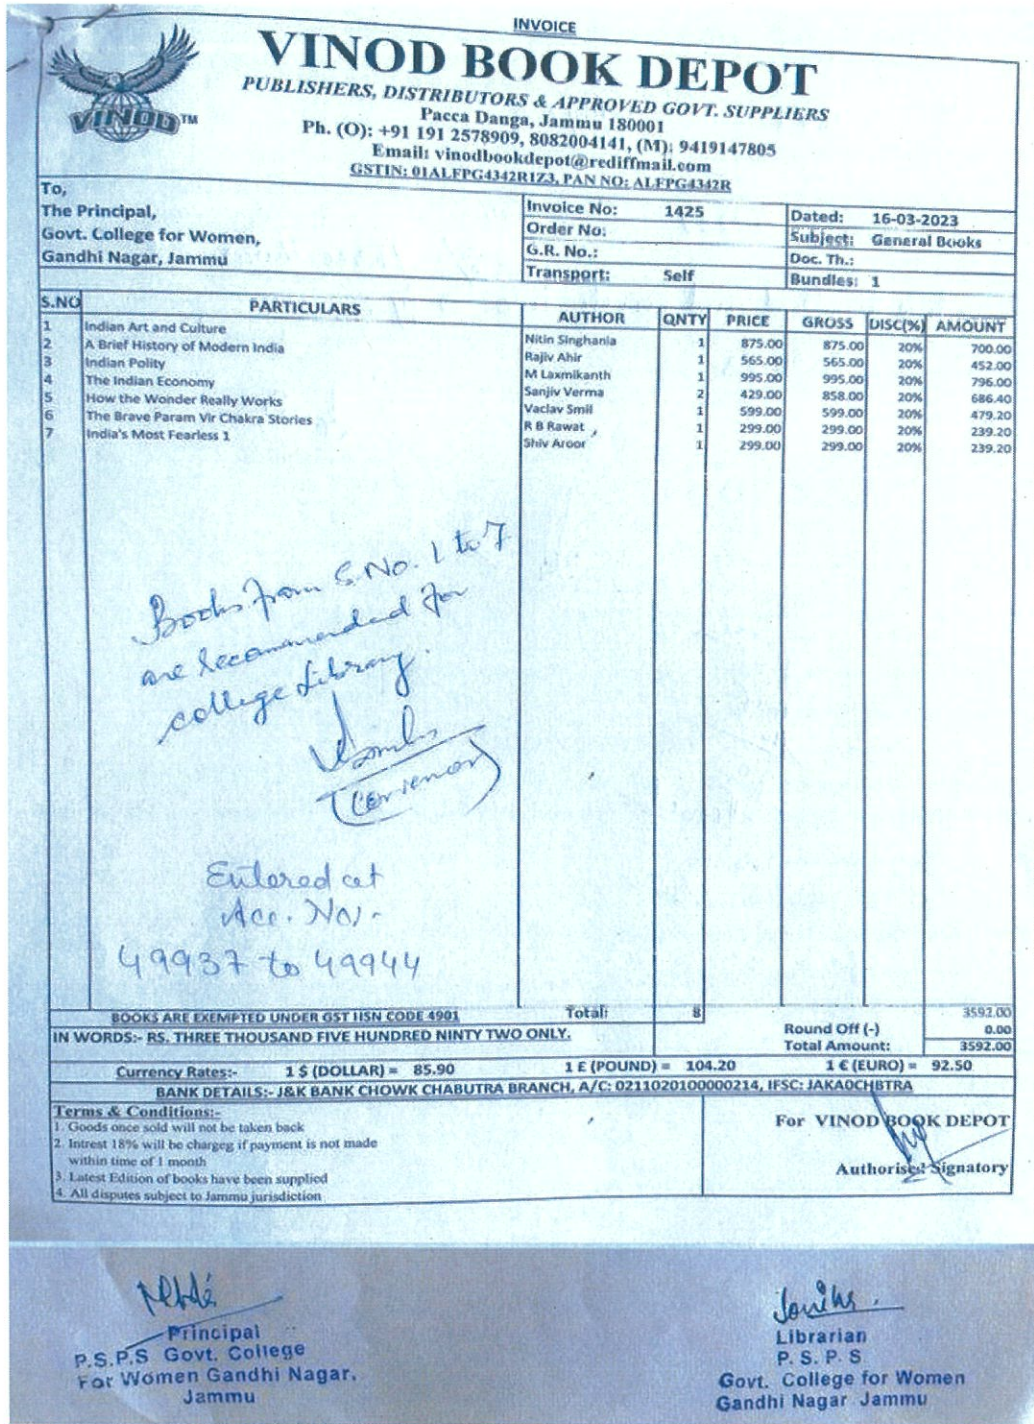 INVOICE
VINOD TM
VINOD BOOK DEPOT
PUBLISHERS, DISTRIBUTORS & APPROVED GOVT. SUPPLIERS
Pacca Danga, Jammu 180001
Ph. (O): +91 191 2578909, 8082004141, (M): 9419147805
Email: vinodbookdepot@rediffmail.com
GSTIN: 01ALFPG4342R1Z3, PAN NO: ALFPG4342R
To,
The Principal,
Govt. College for Women,
Gandhi Nagar, Jammu
Invoice No: 1425 Dated: 16-03-2023
Order No: Subject: General Books
G.R. No.: Doc. Th.:
Transport: Self Bundles: 1
S.NO PARTICULARS AUTHOR QNTY PRICE GROSS DISC(%) AMOUNT
1 Indian Art and Culture Nitin Singhania 1 875.00 875.00 20% 700.00
2 A Brief History of Modern India Rajiv Ahir 1 565.00 565.00 20% 452.00
3 Indian Polity M Laxmikanth 1 995.00 995.00 20% 796.00
4 The Indian Economy Sanjiv Verma 2 429.00 858.00 20% 686.40
5 How the Wonder Really Works Vaclav Smil 1 599.00 599.00 20% 479.20
6 The Brave Param Vir Chakra Stories R B Rawat 1 299.00 299.00 20% 239.20
7 India's Most Fearless 1 Shiv Aroor 1 299.00 299.00 20% 239.20
Books from S.No. 1 to 7
are recommended for
college Library.
(Convenor)
Entered at
Acc. No:-
49937 to 49944
BOOKS ARE EXEMPTED UNDER GST HSN CODE 4901 Total: 8 3592.00
IN WORDS:- RS. THREE THOUSAND FIVE HUNDRED NINTY TWO ONLY. Round Off (-) 0.00
Total Amount: 3592.00
Currency Rates:- 1 $ (DOLLAR) = 85.90 1 £ (POUND) = 104.20 1 € (EURO) = 92.50
BANK DETAILS:- J&K BANK CHOWK CHABUTRA BRANCH, A/C: 0211020100000214, IFSC: JAKA0CHBTRA
Terms & Conditions:-
1. Goods once sold will not be taken back
2. Intrest 18% will be chargeg if payment is not made
within time of 1 month
3. Latest Edition of books have been supplied
4. All disputes subject to Jammu jurisdiction
For VINOD BOOK DEPOT
Authorised Signatory
Principal
P.S.P.S Govt. College
For Women Gandhi Nagar.
Jammu
Librarian
P. S. P. S
Govt. College for Women
Gandhi Nagar Jammu